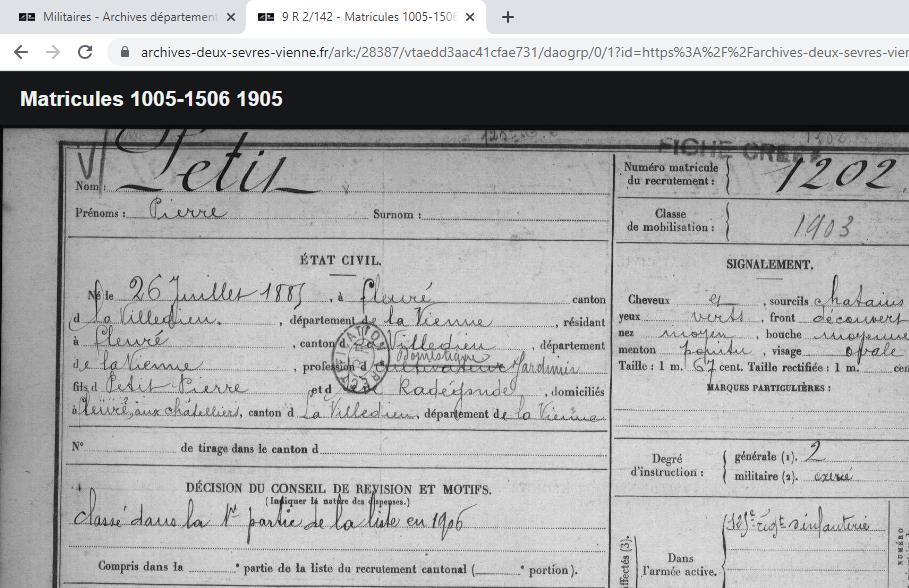 Militaires - Archives département
9 R 2/142 - Matricules 1005-1506
archives-deux-sevres-vienne.fr/ark:/28387/vtaedd3aac41cfae731/daogrp/0/1?id=https%3A%2F%2Farchives-deux-sevres-vier
Matricules 1005-1506 1905
FICHE
Nom : Petit
Prénoms : Pierre Surnom :
Numéro matricule du recrutement : 1202
Classe de mobilisation : 1903
ÉTAT CIVIL.
Né le 26 Juillet 1885, à fleuré canton
d La Villedieu, département de la Vienne, résidant
à fleuré, canton d de Villedieu, département
de la Vienne, profession d cultivateur domestique Jardinier
fils d Petit Pierre et d Radégonde, domiciliés
à fleuré, aux châtelliers, canton d La Villedieu, département de la Vienne
N° de tirage dans le canton d
DÉCISION DU CONSEIL DE REVISION ET MOTIFS.
(Indiquer la nature des dispenses.)
classé dans la 1re partie de la liste en 1906
Compris dans la e partie de la liste du recrutement cantonal ( e portion).
SIGNALEMENT.
Cheveux et, sourcils chatains
yeux verts, front découvert
nez moyen, bouche moyenne
menton pointu, visage ovale
Taille : 1 m. 67 cent. Taille rectifiée : 1 m. cen
MARQUES PARTICULIÈRES :
Degré d'instruction :
générale (1). 2
militaire (2). exercé
Dans l'armée active.
125e régt d'infanterie
ffectés (3).
NUMÉRO